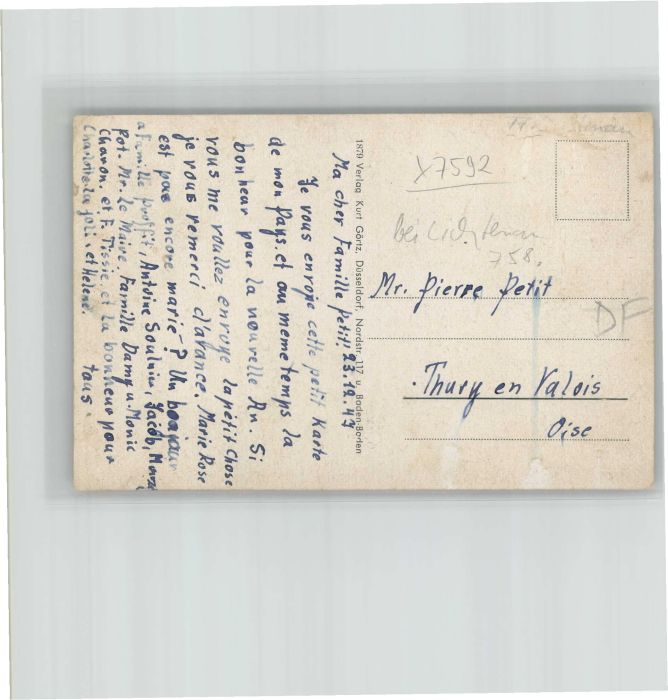 Ma cher Famille petit! 23.12.49
Je vous enroje cette petit Karte
de mon Pays. et au meme temps la
bonheur pour la nouvelle An. Si
vous me voullez enroye lapétit Chose
je vous remerci d'avance. Marie Rose
est pas encore marie? Un boojour
a Famille proffit, Antoine Soulnier, Jacob,
Pot. Mr. le Maire. Famille Damy u. Monic
Charon. et F. Tissie, et La bonheur pour
Charlotte la joli. et Helene. tous.
1879 Verlag Kurt Görtz, Düsseldorf, Nordstr. 117 u. Baden-Baden
X7592
bei
758.
DF
Mr. Pierre Petit
Thury en Valois
Oise